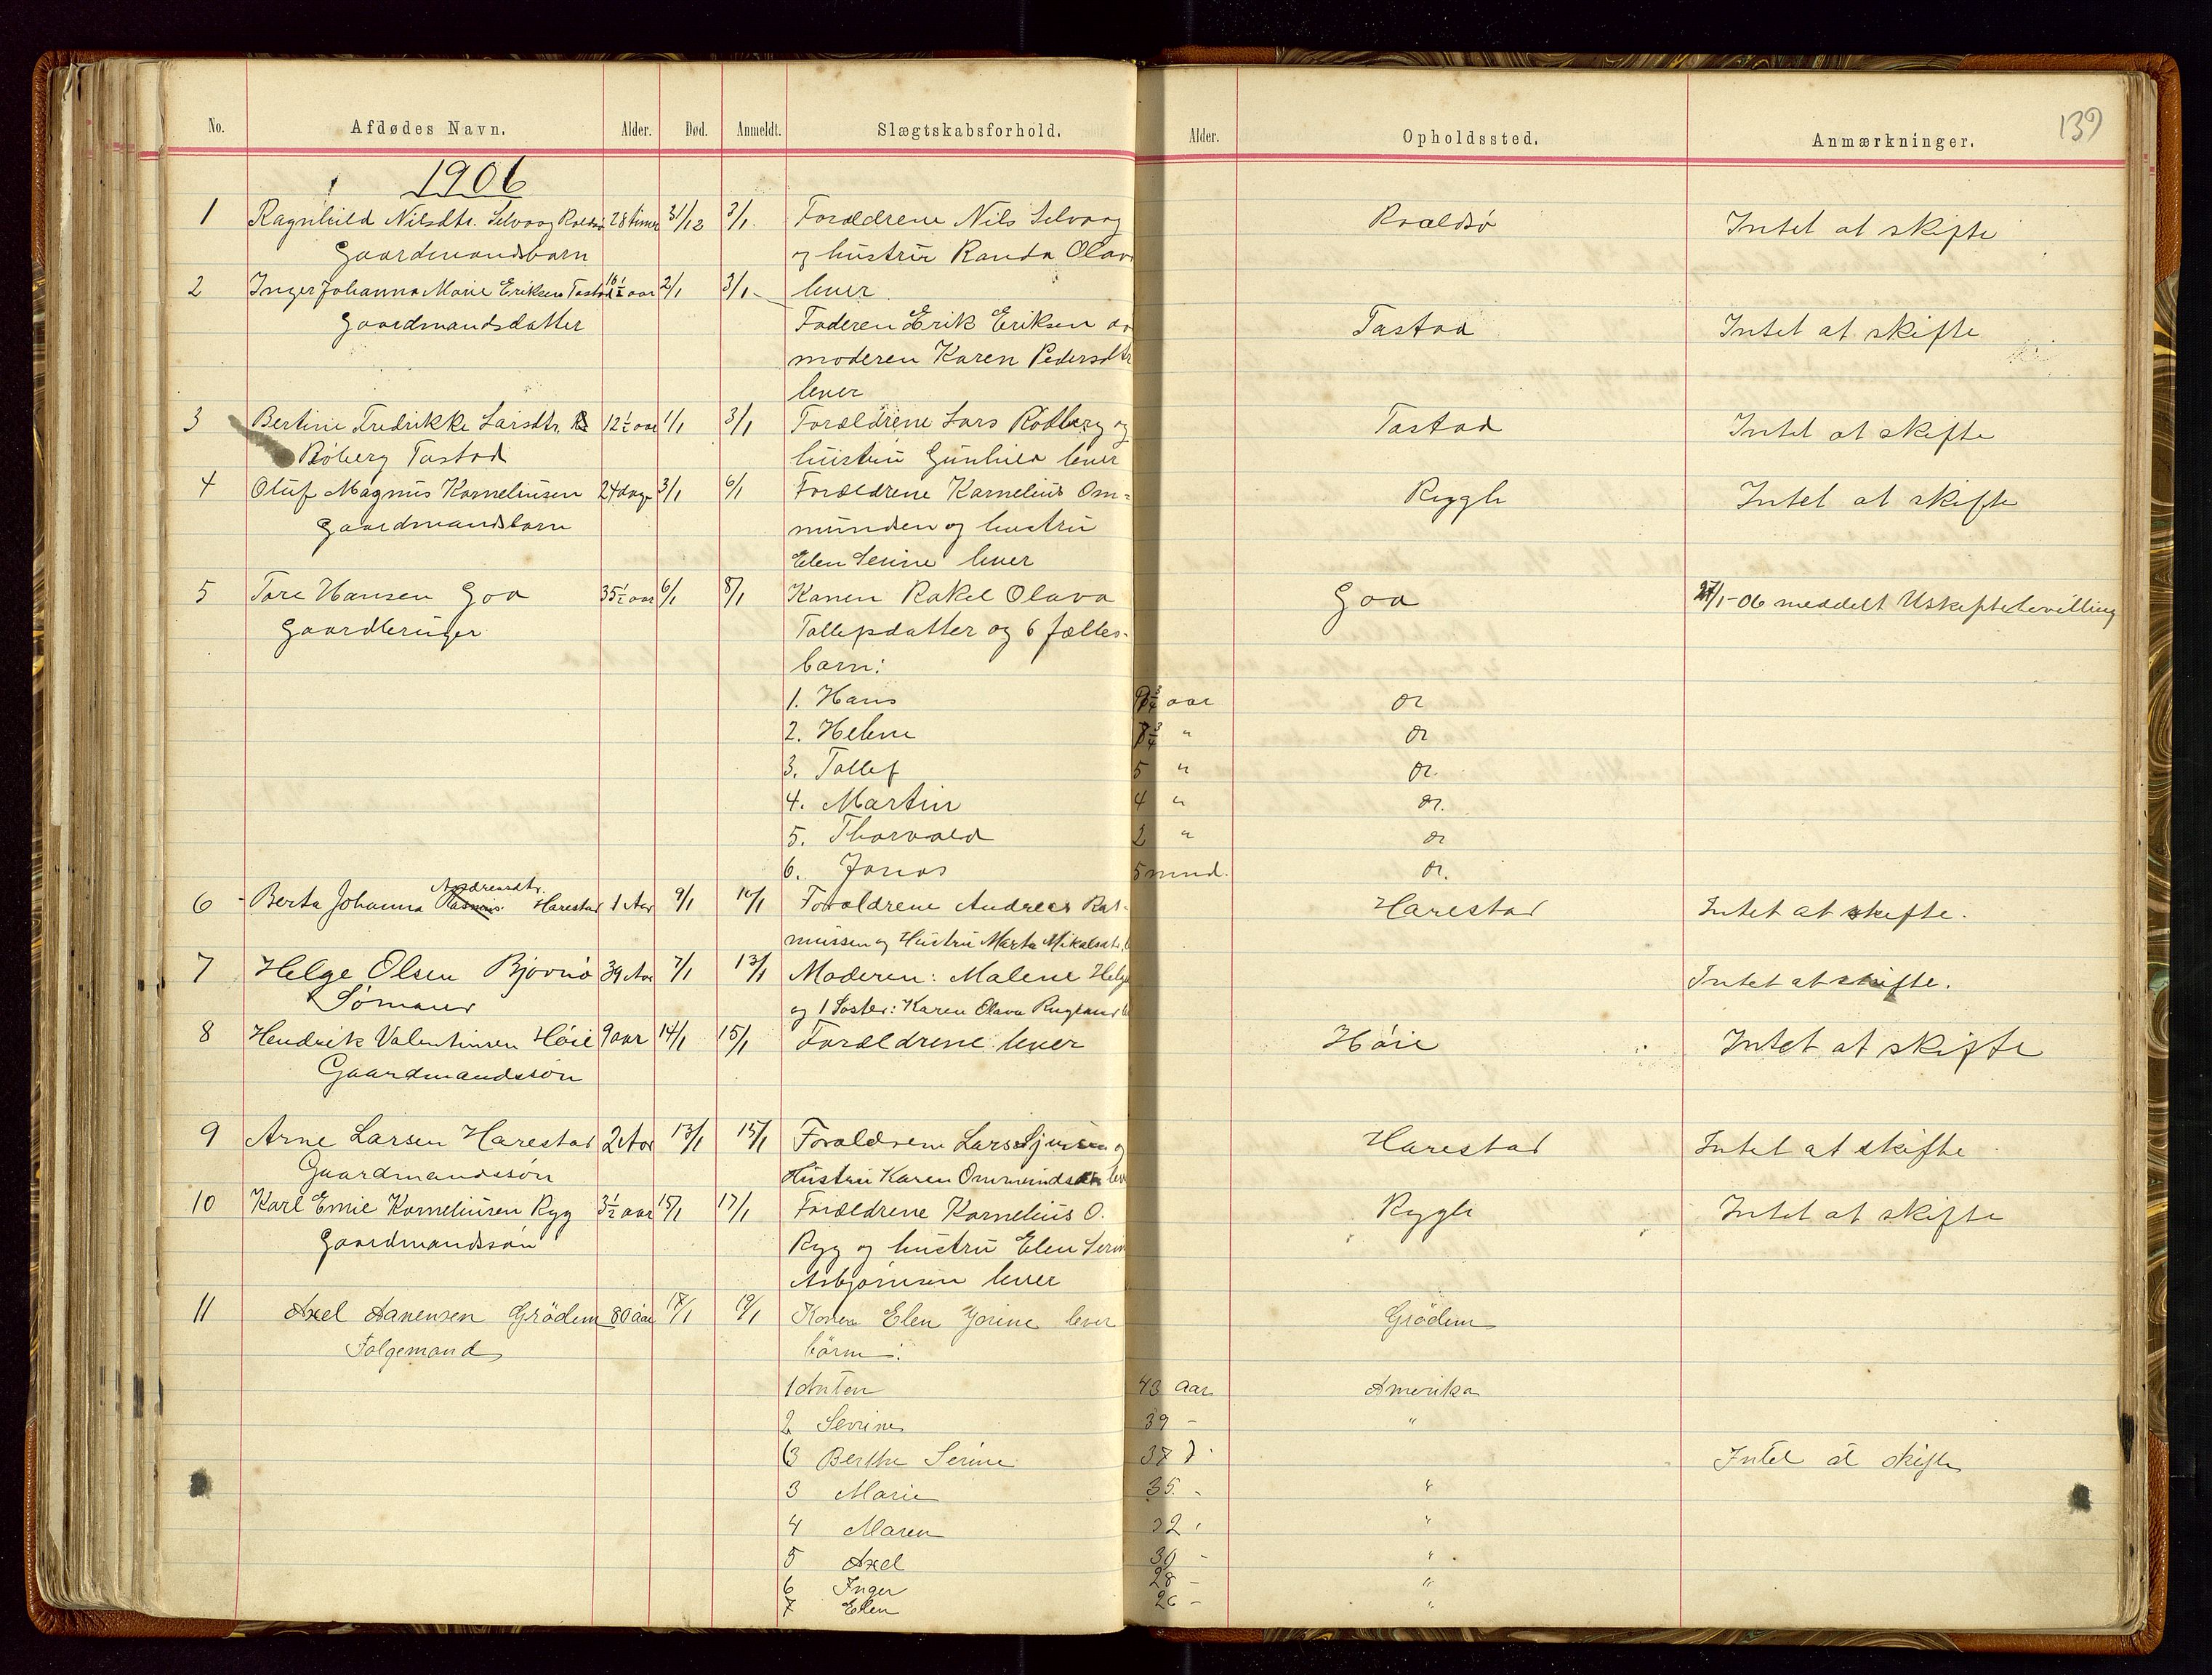 139
No. Afdødes Navn. Alder. Død. Anmeldt. Slægtskabsforhold. Alder. Opholdssted. Anmærkninger.
1906
1 Ragnhild Nilsdtr. Selvaag Roaldsø 28 timer 31/12 3/1 Forældrene Nils Selvaag Roaldsø Intet at skifte
Gaardmandsbarn og hustru Randa Olava
2 Inger Johanna Marie Eriksen Tastad 16½ aar 2/1 3/1 lever
Gaardmandsdatter Faderen Erik Eriksen og Tastad Intet at skifte
moderen Karen Pedersdtr
lever
3 Bertine Fredrikke Larsdtr. 12½ aar 1/1 3/1 Forældrene Lars Rödberg og Tastad Intet at skifte
Röberg Tastad hustru Gunhild lever
4 Oluf Magnus Korneliusen 24 dage 3/1 6/1 Forældrene Kornelius Om= Rygh Intet at skifte
Gaardmandsbarn munden og hustru
Elen Serine lever
5 Tore Hansen Goa 35½ aar 6/1 8/1 Konen Rakel Olava Goa 27/1-06 meddelt Uskiftebevilling
Gaardbruger Tollefsdatter og 6 fælles-
barn:
1. Hans 9¾ aar do
2. Helene 8¾ " do
3. Tollef 5 " do.
4. Martin 4 " do.
5. Thorvald 2 " do
6. Jonas 5 mnd. do.
Andreasdtr.
6 Berta Johanna Rasmus Harestad 1 Aar 9/1 10/1 Forældrene Andreas Ras- Harestad Intet at skifte.
mussen og Hustru Marta Mikalsdtr.
7 Helge Olsen Bjovnö 39 Aar 7/1 13/1 Moderen: Malene Helge Intet at skifte.
Sömand og 1 Søster: Karen Olava Rugland
8 Hendrik Valentinsen Höie 9 aar 14/1 15/1 Forældrene lever Höie Intet at skifte
Gaardmandssön
9 Arne Larsen Harestad 2 Aar 13/1 15/1 Forældrene Lars Sjursen og Harestad Intet at skifte
Gaardmandssön Hustru Karen Ommundsen lev
10 Karl Emil Korneliusen Ryg 3½ aar 15/1 17/1 Forældrene Kornelius O. Rygh Intet at skifte
Gaardmandssøn Ryg og hustru Elen Serine
Asbjørnsen lever
11 Axel Aanensen Grödem 80 aar 17/1 19/1 Konen Elen Jorine lever Grödem
Folgemand börn:
1 Anton 43 aar Amerika
2 Sevrine 39 - "
3 Berthe Serine 37 Intet at skifte
3 Marie 35 - "
4 Maren 32 "
5 Axel 30 - "
6 Inger 28 - "
7 Elen 26 - "